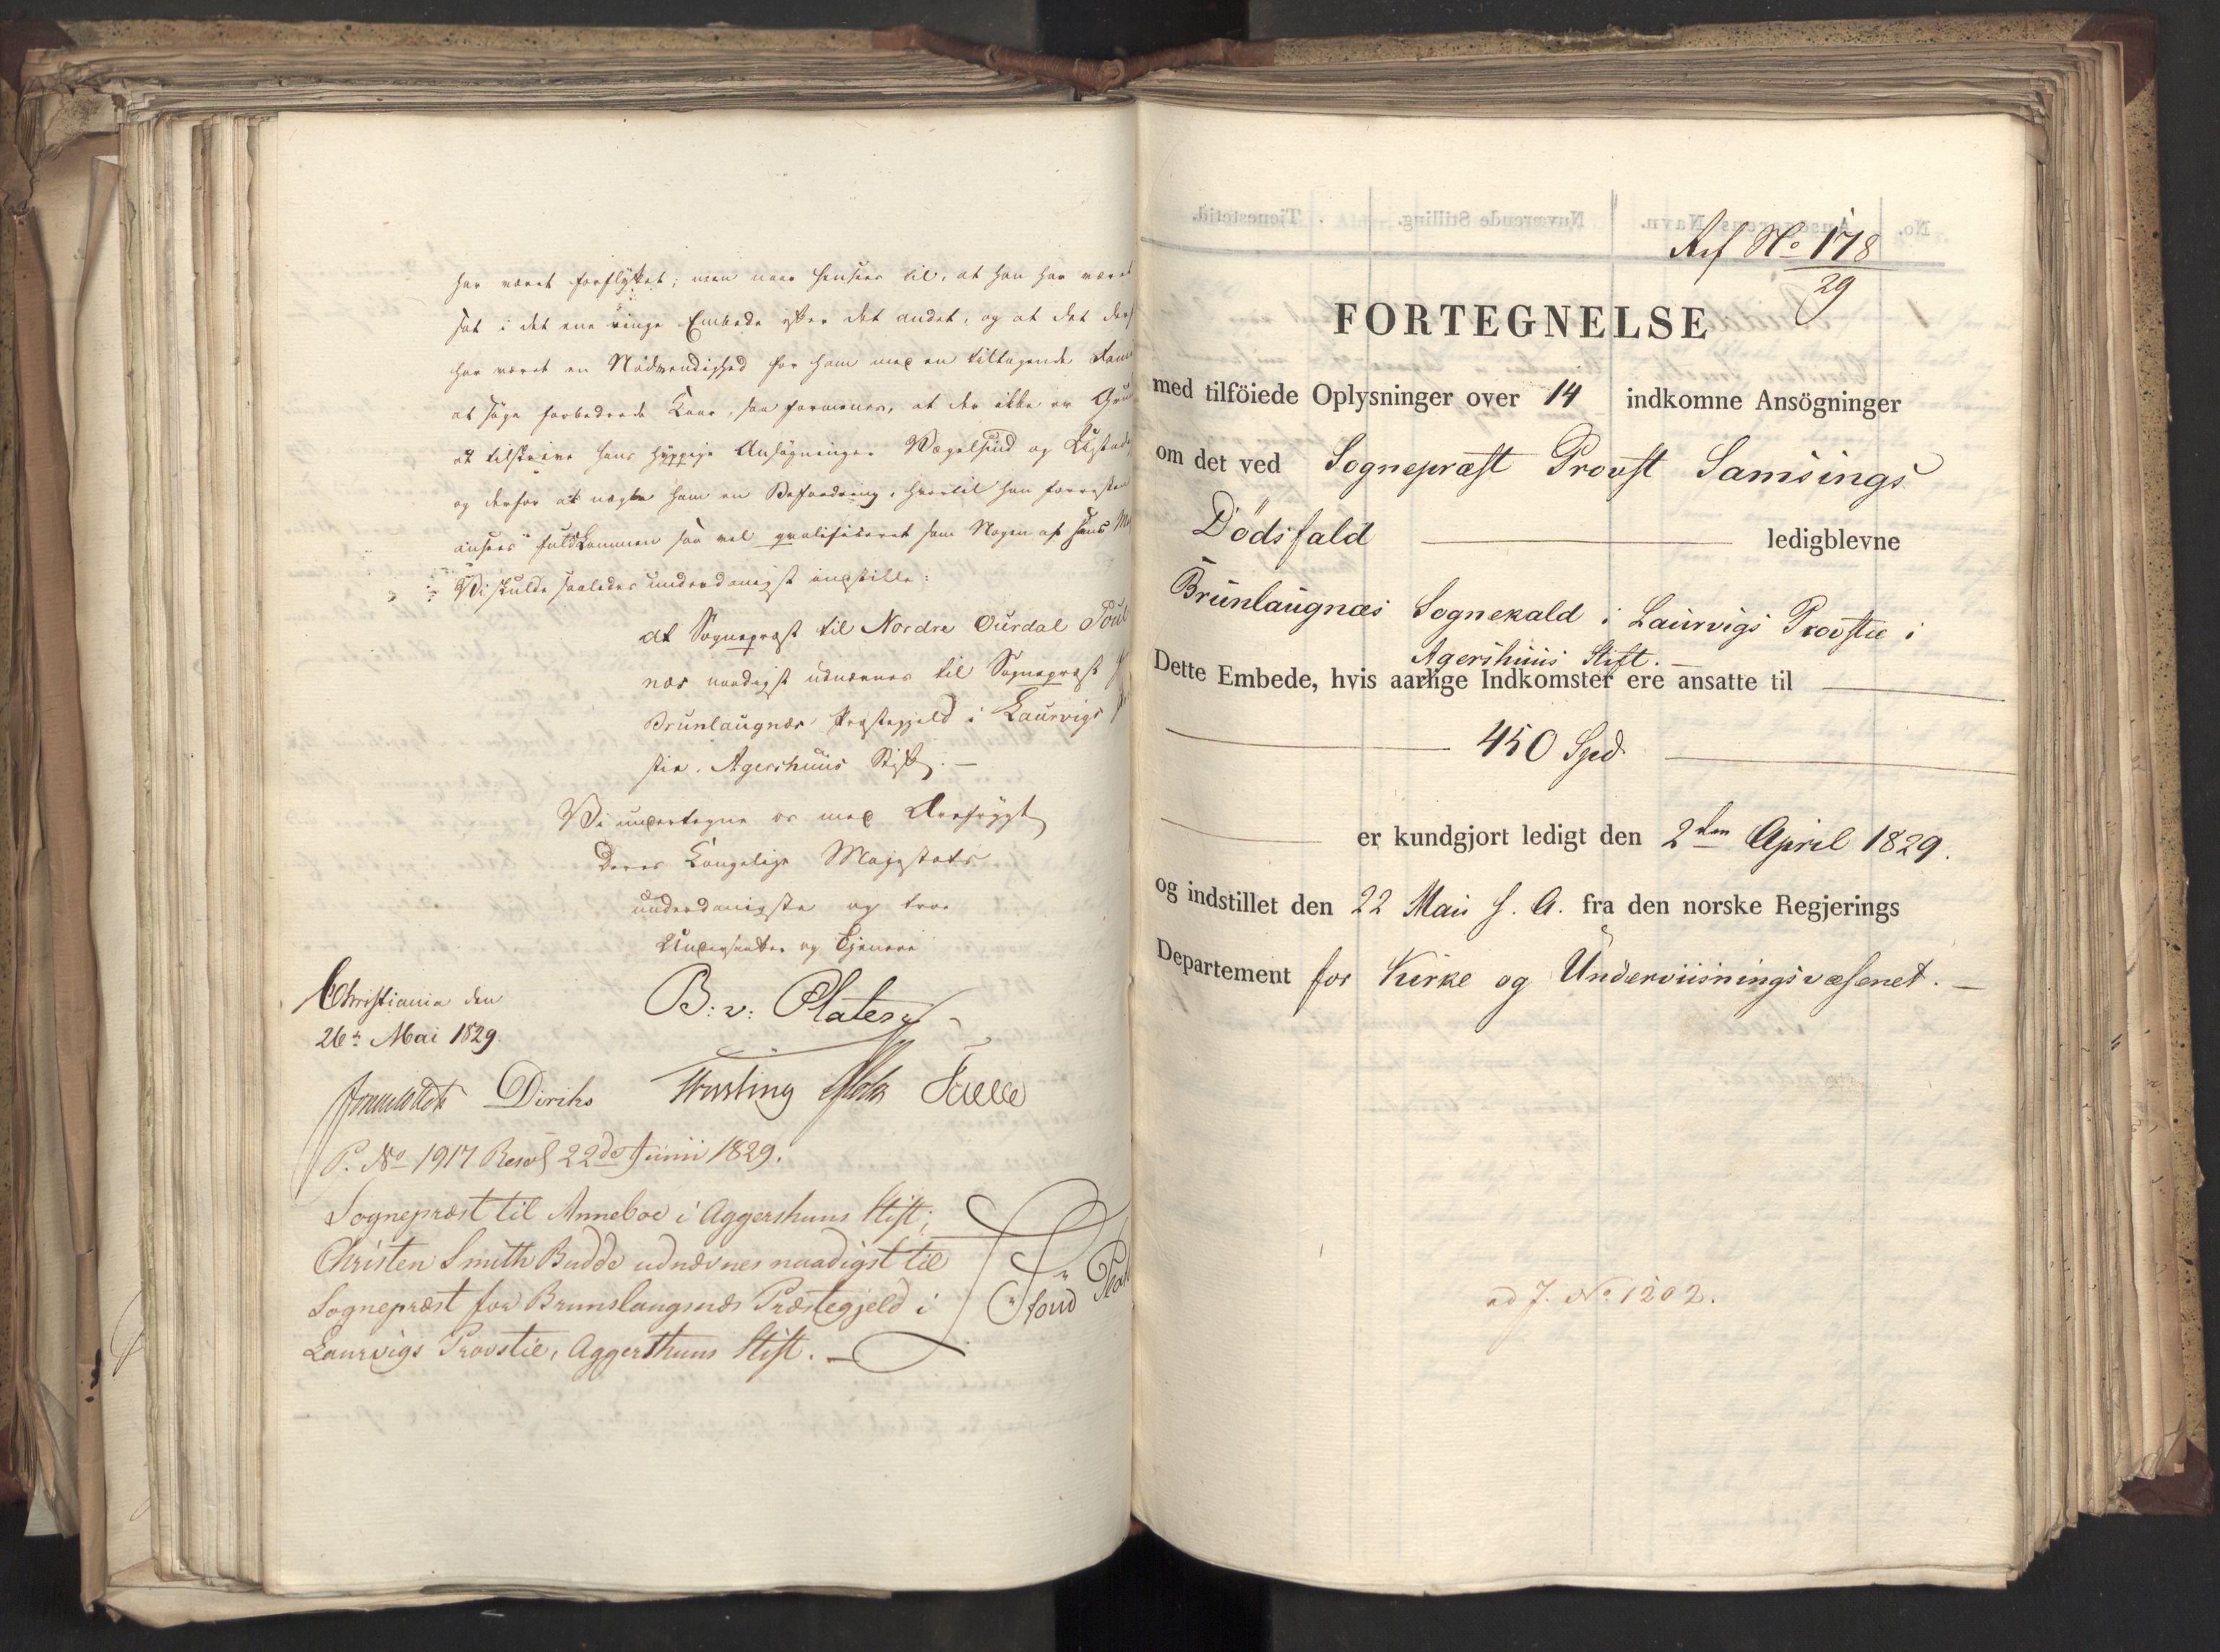 har været forflyttet; men naar hensees til, at han har været
sat i det ene ringe Embede efter det andet, og at det ders
har været en Nødvendighed for ham med en tiltagende Fami
at søge forbedrede Kaar, saa formenes, at der ikke er Grund
at tilskrive hans hyppige Ansøgninger Vægelsind og
og derfor at nægte ham en Befordring, hvortil han forresten
ansees fuldkommen saa vel qualificeret som Nogen af hans Me
Vi skulde saaledes underdanigst indstille:
at Sognepræst til Nordre Ourdal
næs naadigst udnævnes til Sognepræst f
Brunlaugnæs Præstegjeld i Laurvigs P
stie, Agershuus Stift. —
Vi undertegne os med Ærefrygt
Deres Kongelige Majestæts
underdanigste og troe
Undersaatter og Tjenere
Christiania den
26de Mai 1829.
B: v: Platen
Diriks
P. No 1917 Resol 22de Junii 1829.
Sognepræst til Anneboe i Aggershuus Stift,
Christen Smith Budde udnævnes naadigst til
Sognepræst for Brunslaugsnæs Præstegjeld i
Laurvigs Provstie, Aggershuus Stift. —
Ref No 178
29
FORTEGNELSE
med tilföiede Oplysninger over 14 indkomne Ansögninger
om det ved Sognepræst Provst Samsings
Dödsfald — ledigblevne
Brunlaugnæs Sognekald i Laurvigs Provstie i
Agershuus Stift. —
Dette Embede, hvis aarlige Indkomster ere ansatte til —
— 450 Spd. —
— er kundgjort ledigt den 2den April 1829.
og indstillet den 22 Mai s. A. fra den norske Regjerings
Departement for Kirke og Underviisningsvæsenet. —
ad J. No 1202.